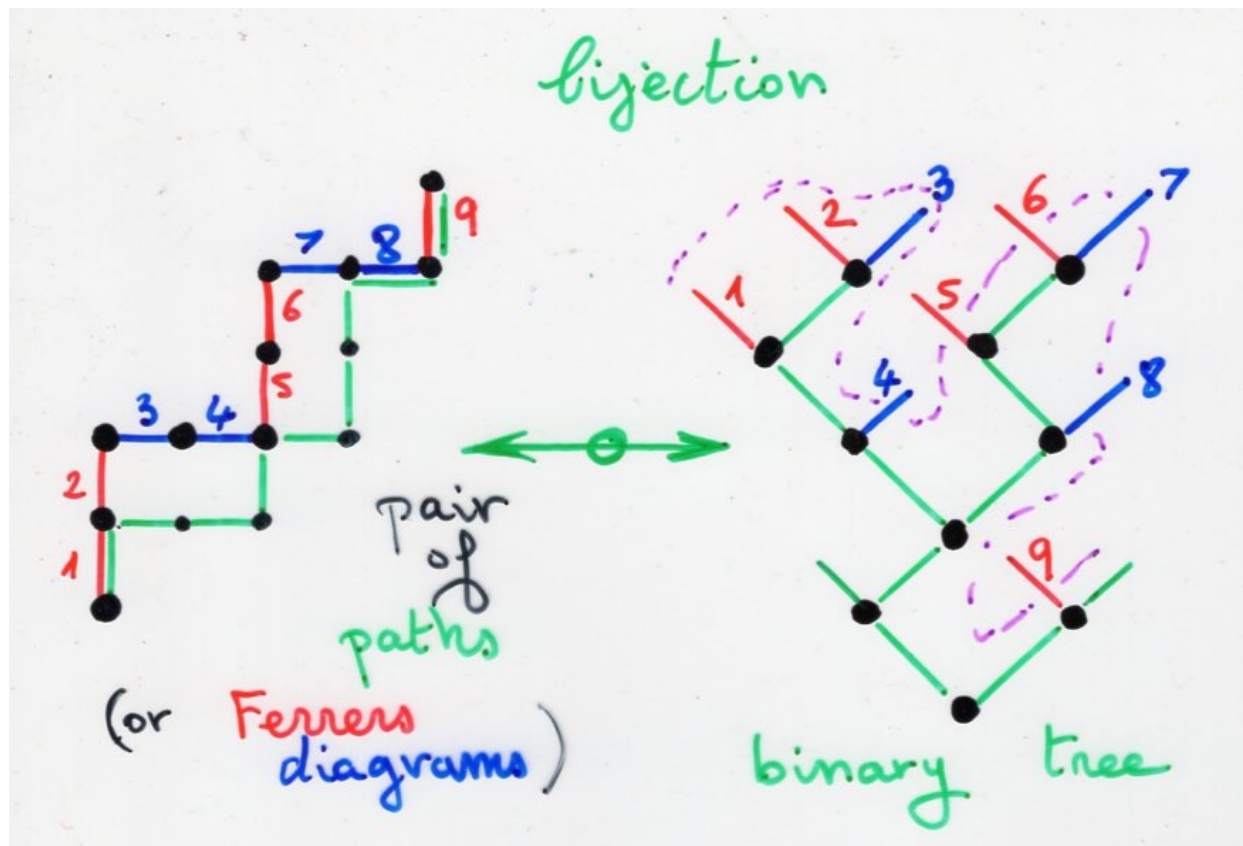 bijection
9
7 8
6
5
3 4
2
1
pair
of
paths
(or Ferrers
diagrams)
2 3 6 7
1 5
4 8
9
binary tree